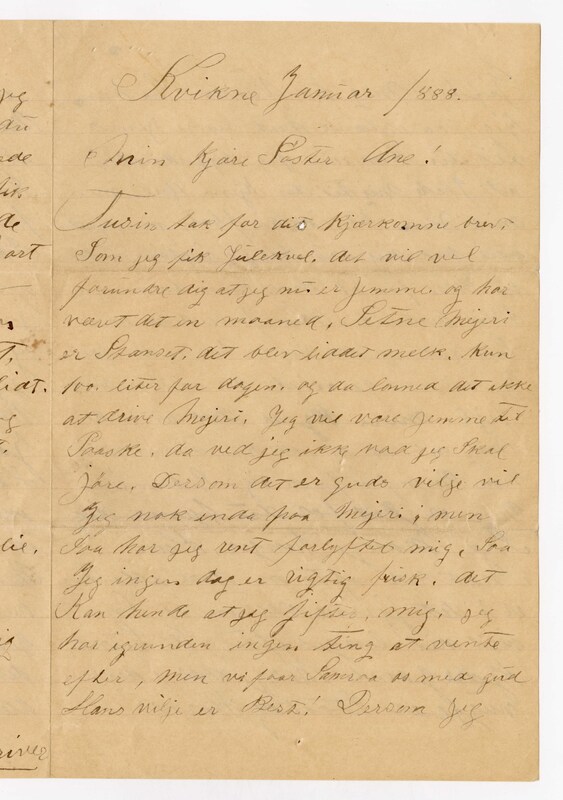 Kvikne Januar 1888.
Min kjære Søster Ane!
Tusin tak for dit kjærkomne brev.
Som jeg fik Julekvel. det vil vel
forundre dig at jeg nu er jemme. og har
været det en maaned. Setne Mejeri
er Stanset. det blev liddet melk. Kun
100. liter for dagen. og da lønned det ikke
at drive Mejeri. Jeg vil være jemme til
Paaske. da ved jeg ikke vad jeg Skal
jøre. Dersom det er guds vilje vil
Jeg nok enda paa Mejeri, men
Saa har jeg rent forlyftet mig. Saa
Jeg ingen dag er rigtig frisk. det
Kan hende at jeg jifter mig. jeg
har igrunden ingen ting at vente
efter, Men vi faar Samraa os med gud
Hans vilje er Best! Dersom Jeg
jeg
du
de
ort
lidt.